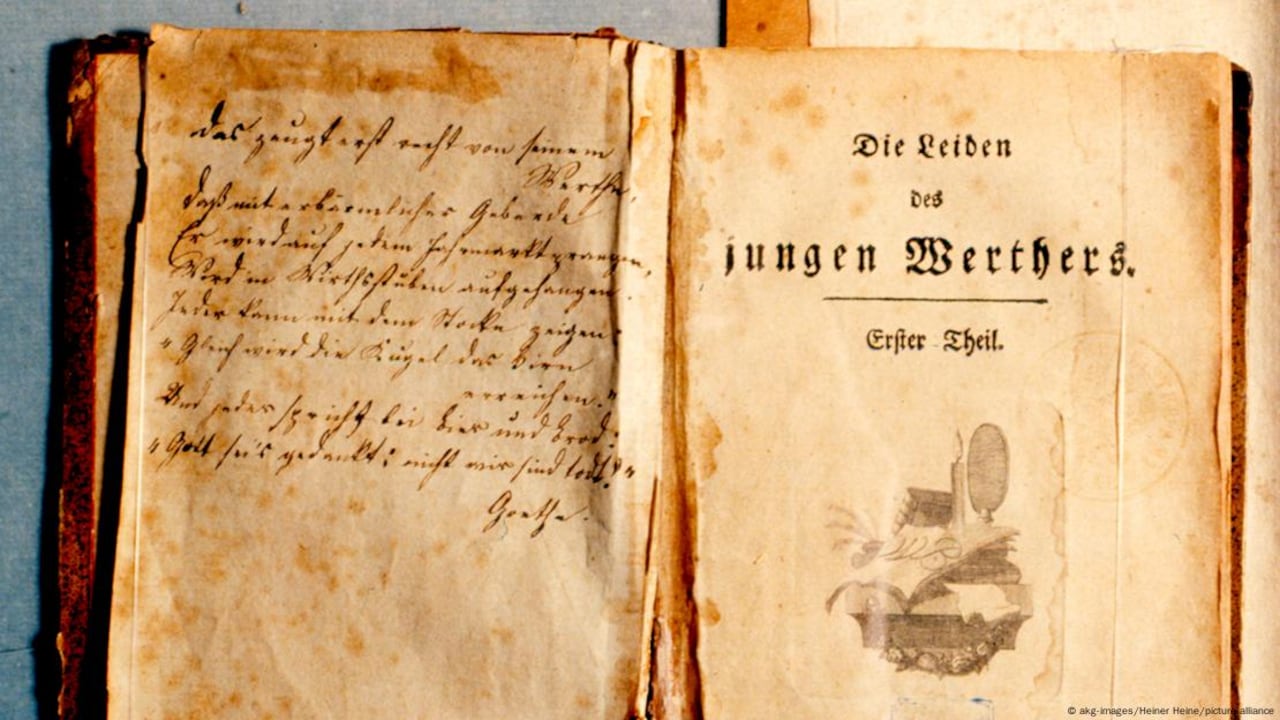 Das zeugt erst recht von seinem
Werthe,
Daß mit erbärmlicher Geberde
Er wird auf jedem Jahrmarkt prangen,
Wird in Wirthsstuben aufgehangen.
Jeder kann mit dem Stocke zeigen:
"Gleich wird die Kugel das Hirn
erreichen."
Und jeder spricht bei Bier und Brod:
"Gott sei's gedankt: nicht wir sind todt!"
Goethe.
Die Leiden
des
jungen Werthers.
Erster Theil.
© akg-images/Heiner Heine/picture alliance